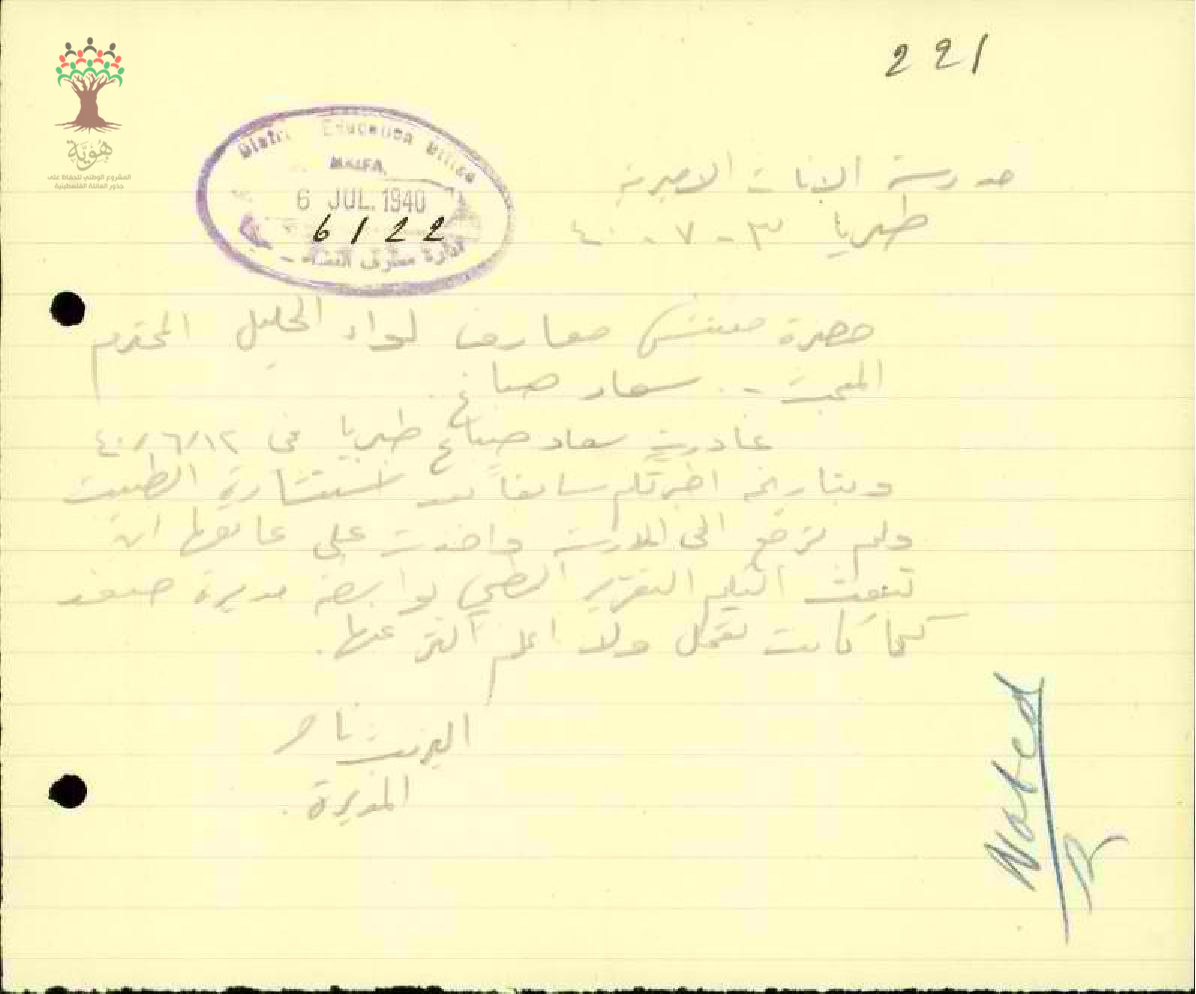 221
هوية
المشروع الوطني للحفاظ على
جذور العائلة الفلسطينية
Distri Education Office
HAIFA.
6 JUL. 1940
6122
ادارة معارف
مدرسة الاناث الاميرية
طبريا ٣-٧-٤٠
حضرة مفتش معارف لواء الجليل المحترم
المبحث - سعاد صباغ
غادرت سعاد صباغ طبريا في ١٢/٦/٤٠
وبتاريخه اخبرتكم سابقاً بعد استشارة الطبيب
ولم ترجع الى المدرسة واخذت على عاتقها ان
تبعث اليكم التقرير الطبي بواسطة مديرة صفد
كما كانت تعمل ولا اعلم اكثر عنها.
اليزابيت
المديرة.
Noted